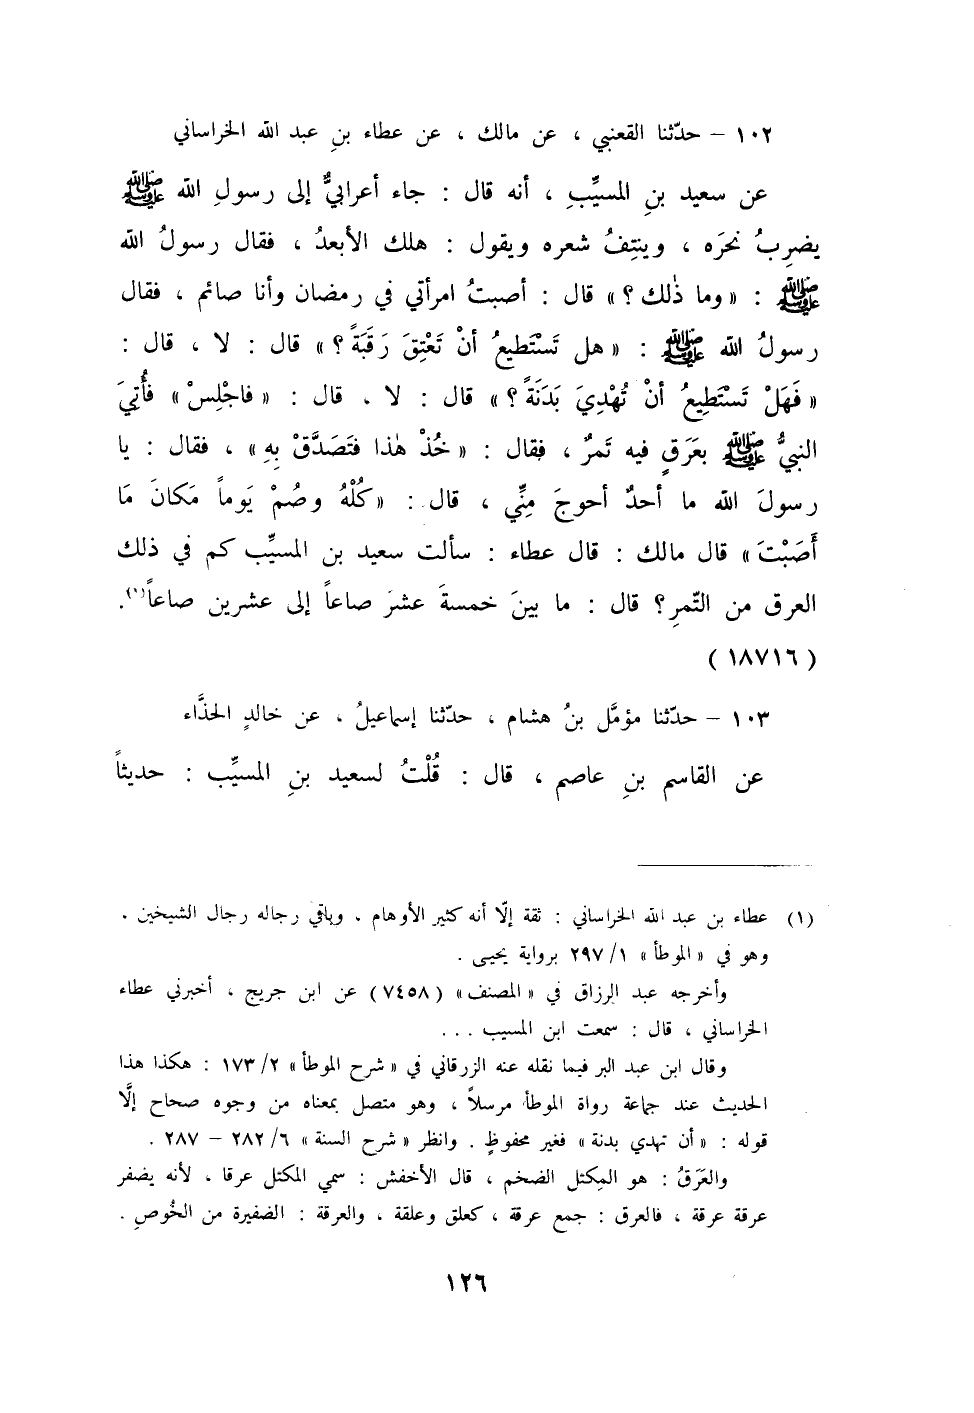 ١٠٢ – حدّثنا القعنبي ، عن مالك ، عن عطاء بنِ عبد الله الخراساني
عن سعيد بنِ المسيِّبِ ، أنه قال : جاء أعرابيٌّ إلى رسولِ الله ﷺ
يضرِبُ نحرَه ، وينتِفُ شعره ويقول : هلك الأبعدُ ، فقال رسولُ الله
ﷺ : « وما ذٰلك ؟ » قال : أصبتُ امرأتي في رمضان وأنا صائم ، فقال
رسولُ الله ﷺ : « هل تَسْتَطيعُ أنْ تَعْتِقَ رَقَبَةً ؟ » قال : لا ، قال :
« فَهَلْ تَسْتَطِيعُ أنْ تُهْدِيَ بَدَنَةً ؟ » قال : لا . قال : « فاجْلِسْ » فأُتِيَ
النبيُّ ﷺ بعَرَقٍ فيه تَمرٌ ، فقال : « خُذْ هٰذا فتَصَدَّقْ بِهِ » ، فقال : يا
رسولَ الله ما أحدٌ أحوجَ مِنِّي ، قال : « كُلْهُ وصُمْ يَوماً مَكانَ مَا
أَصَبْتَ » قال مالك : قال عطاء : سألت سعيد بن المسيِّب كم في ذلك
العرق من التّمرِ ؟ قال : ما بينَ خمسةَ عشرَ صاعاً إلى عشرين صاعاً(١).
( ١٨٧١٦ )
١٠٣ – حدّثنا مؤمَّل بنُ هشام ، حدّثنا إسماعيلُ ، عن خالدٍ الحذَّاء
عن القاسم بنِ عاصم ، قال : قُلْتُ لسعيد بنِ المسيِّب : حديثاً
(١) عطاء بن عبد الله الخراساني : ثقة إلّا أنه كثير الأوهام . وباقي رجاله رجال الشيخين .
وهو في « الموطأ » ١/ ٢٩٧ برواية يحيى .
وأخرجه عبد الرزاق في « المصنف » ( ٧٤٥٨ ) عن ابن جريج ، أخبرني عطاء
الخراساني ، قال : سمعت ابن المسيب . . .
وقال ابن عبد البر فيما نقله عنه الزرقاني في « شرح الموطأ » ٢/ ١٧٣ : هكذا هذا
الحديث عند جماعة رواة الموطأ مرسلاً ، وهو متصل بمعناه من وجوه صحاح إلَّا
قوله : « أن تهدي بدنة » فغير محفوظٍ . وانظر « شرح السنة » ٦/ ٢٨٢ – ٢٨٧ .
والعَرَقُ : هو المِكتل الضخم ، قال الأخفش : سمي المكتل عرقا ، لأنه يضفر
عرقة عرقة ، فالعرق : جمع عرقة ، كعلق وعلقة ، والعرقة : الضفيرة من الخُوصِ .
١٢٦